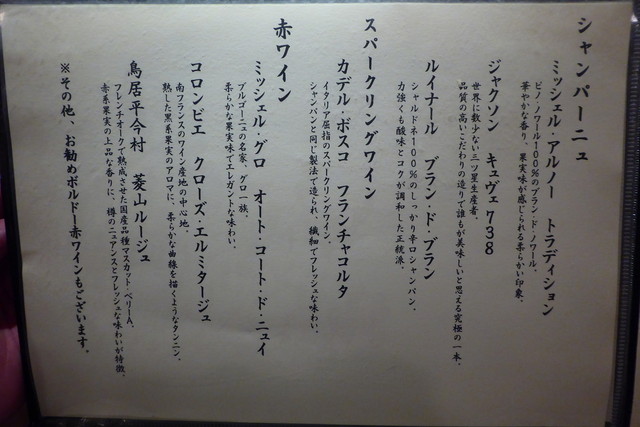 シャンパーニュ
ミッシェル・アルノー　トラディション
ピノ・ノワール100%のブラン・ド・ノワール。
華やかな香り、果実味が感じられる柔らかい印象。
ジャクソン　キュヴェ738
世界に数少ない三ツ星生産者。
品質の高いこだわりの造りで誰もが美味しいと思える究極の一本。
ルイナール　ブラン・ド・ブラン
シャルドネ100%のしっかり辛口シャンパン。
力強くも酸味とコクが調和した正統派。
スパークリングワイン
カデル・ボスコ　フランチャコルタ
イタリア屈指のスパークリングワイン。
シャンパンと同じ製法で造られ、繊細でフレッシュな味わい。
赤ワイン
ミッシェル・グロ　オート・コート・ド・ニュイ
ブルゴーニュの名家、グロ一族。
柔らかな果実味でエレガントな味わい。
コロンビエ　クローズ・エルミタージュ
南フランスのワイン産地の中心地。
熟した黒系果実のアロマに、柔らかな曲線を描くようなタンニン。
鳥居平今村　菱山ルージュ
フレンチオークで熟成させた国産品種マスカット・ベリーA。
赤系果実の上品な香りに、樽のニュアンスとフレッシュな味わいが特徴。
※その他、お勧めボルドー赤ワインもございます。